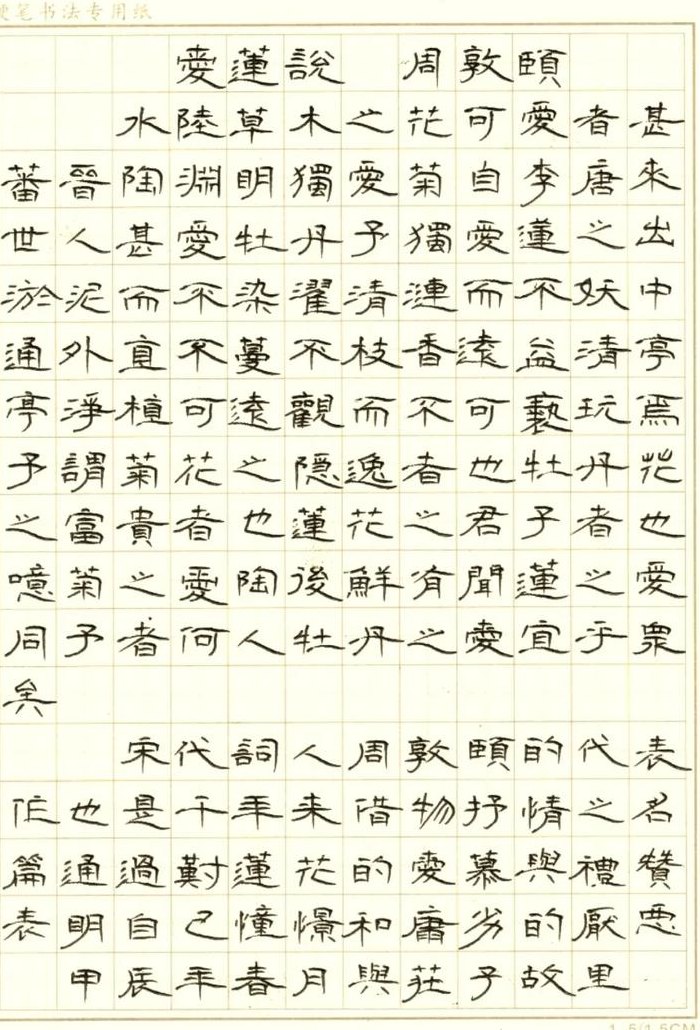 硬笔书法专用纸
愛蓮說 周敦頤
水陸草木之花可愛者甚
蕃晉陶淵明獨愛菊自李唐來
世人甚愛牡丹予獨愛蓮之出
淤泥而不染濯清漣而不妖中
通外直不蔓不枝香遠益清亭
亭淨植可遠觀而不可褻玩焉
予謂菊花之隱逸者也牡丹花
之富貴者也蓮花之君子者也
噫菊之愛陶後鮮有聞蓮之愛
同予者何人牡丹之愛宜乎眾
矣
宋代詞人周敦頤的代表
作也是千年来借物抒情之名
篇通過對蓮花的愛慕與禮贊
表明自己憧憬和庸劣的厭惡
甲辰年春月與莊子故里